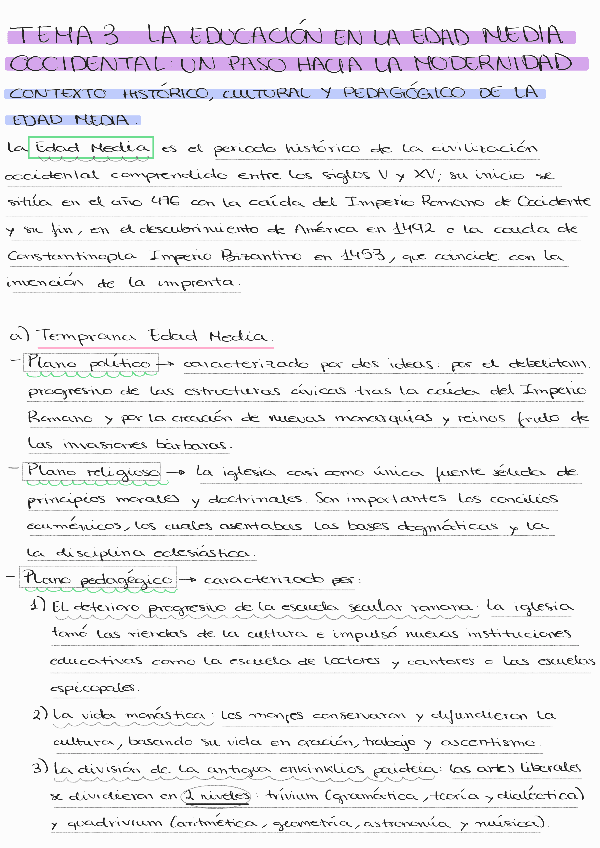 TEMA 3 LA EDUCACIÓN EN LA EDAD MEDIA
OCCIDENTAL: UN PASO HACIA LA MODERNIDAD
CONTEXTO HISTÓRICO, CULTURAL Y PEDAGÓGICO DE LA
EDAD MEDIA.
La Edad Media es el periodo histórico de la civilización
occidental comprendido entre los siglos V y XV; su inicio se
sitúa en el año 476 con la caída del Imperio Romano de Occidente
y su fin, en el descubrimiento de América en 1492 o la caída de
Constantinopla Imperio Bizantino en 1453, que coincide con la
invención de la imprenta.
a) Temprana Edad Media.
- Plano político → caracterizado por dos ideas: por el debilitam.
progresivo de las estructuras cívicas tras la caída del Imperio
Romano y por la creación de nuevas monarquías y reinos fruto de
las invasiones bárbaras.
- Plano religioso → La iglesia casi como única fuente sólida de
principios morales y doctrinales. Son importantes los concilios
ecuménicos, los cuales asentabas las bases dogmáticas y la
la disciplina eclesiástica.
- Plano pedagógico → caracterizado por:
1) EL deterioro progresivo de la escuela secular romana: la iglesia
tomó las riendas de la cultura e impulsó nuevas instituciones
educativas como la escuela de lectores y cantores o las escuelas
espicopales.
2) La vida monástica: Los monjes conservaron y difundieron la
cultura, basando su vida en oración, trabajo y ascentismo.
3) La división de la antigua enkinklios paideia: las artes liberales
se dividieron en 2 niveles: trívium (gramática, teoría y dialéctica)
y quadrivium (aritmética, geometría, astronomía y música).